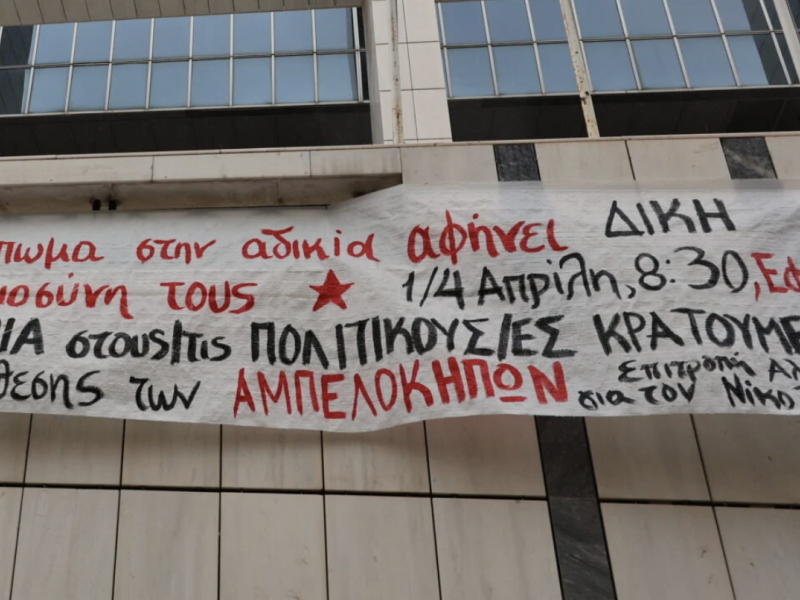 πωμα στην αδικία αφήνει ΔΙΚΗ
ιοσύνη τους ★ 1/4 Απρίλη, 8:30, Εφ
ΙΑ στους/τις ΠΟΛΙΤΙΚΟΥΣ/ΕΣ ΚΡΑΤΟΥΜΕ
θεσης των ΑΜΠΕΛΟΚΗΠΩΝ Επιτροπή Αλ
για τον Νίκο